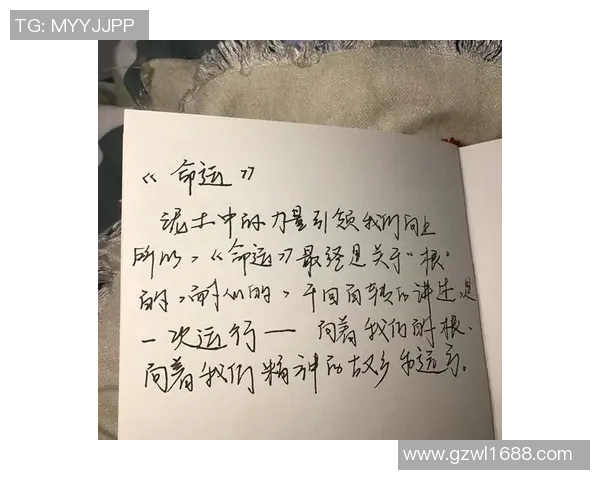 TG: MYYJJPP
《命运》
泥土中的力量引领我们向上
所以,《命运》最终是关于“根”
的,而人的,千回百转的讲述,是
一次运行——向着我们的根、
向着我们精神的故乡的运行。
www.gzwl1688.com